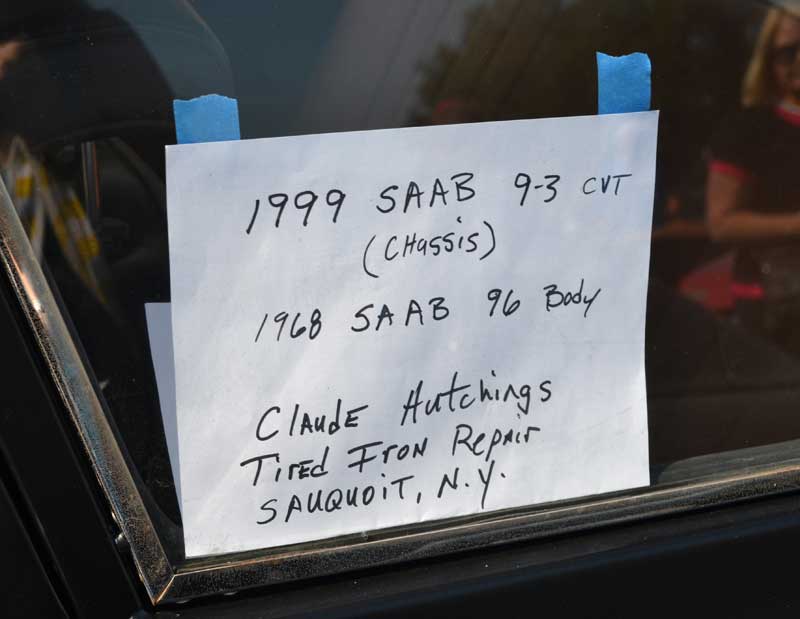 1999 SAAB 9-3 CVT
(CHassis)
1968 SAAB 96 Body
Claude Hutchings
Tired Iron Repair
SAUQUOIT, N.Y.